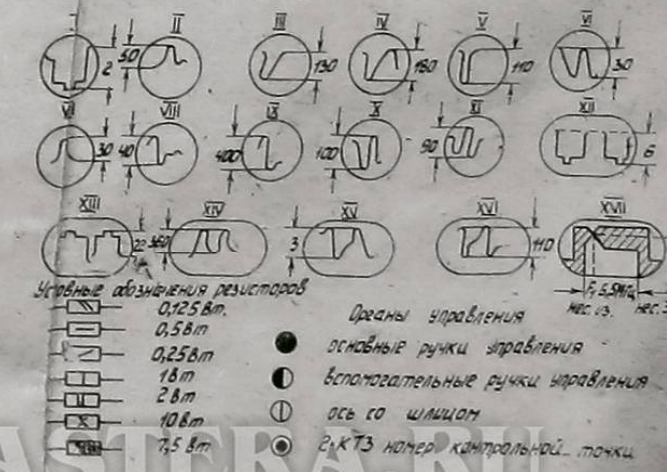 I II III IV V VI
2 50 130 180 110 30
VI VIII IX X XI XII
30 40 400 100 90 6
XIII XIV XV XVI XVII
22 360 3 110
F₁ 6,5МГц
нес. из. нес.
Условные обозначения резисторов
0,125 Вт.
0,5 Вт
0,25 Вт
1 Вт
2 Вт
10 Вт
7,5 Вт
Органы управления
основные ручки управления
вспомогательные ручки управления
ось со шлицом
2-КТ3 номер контрольной точки
ASTERA.RU